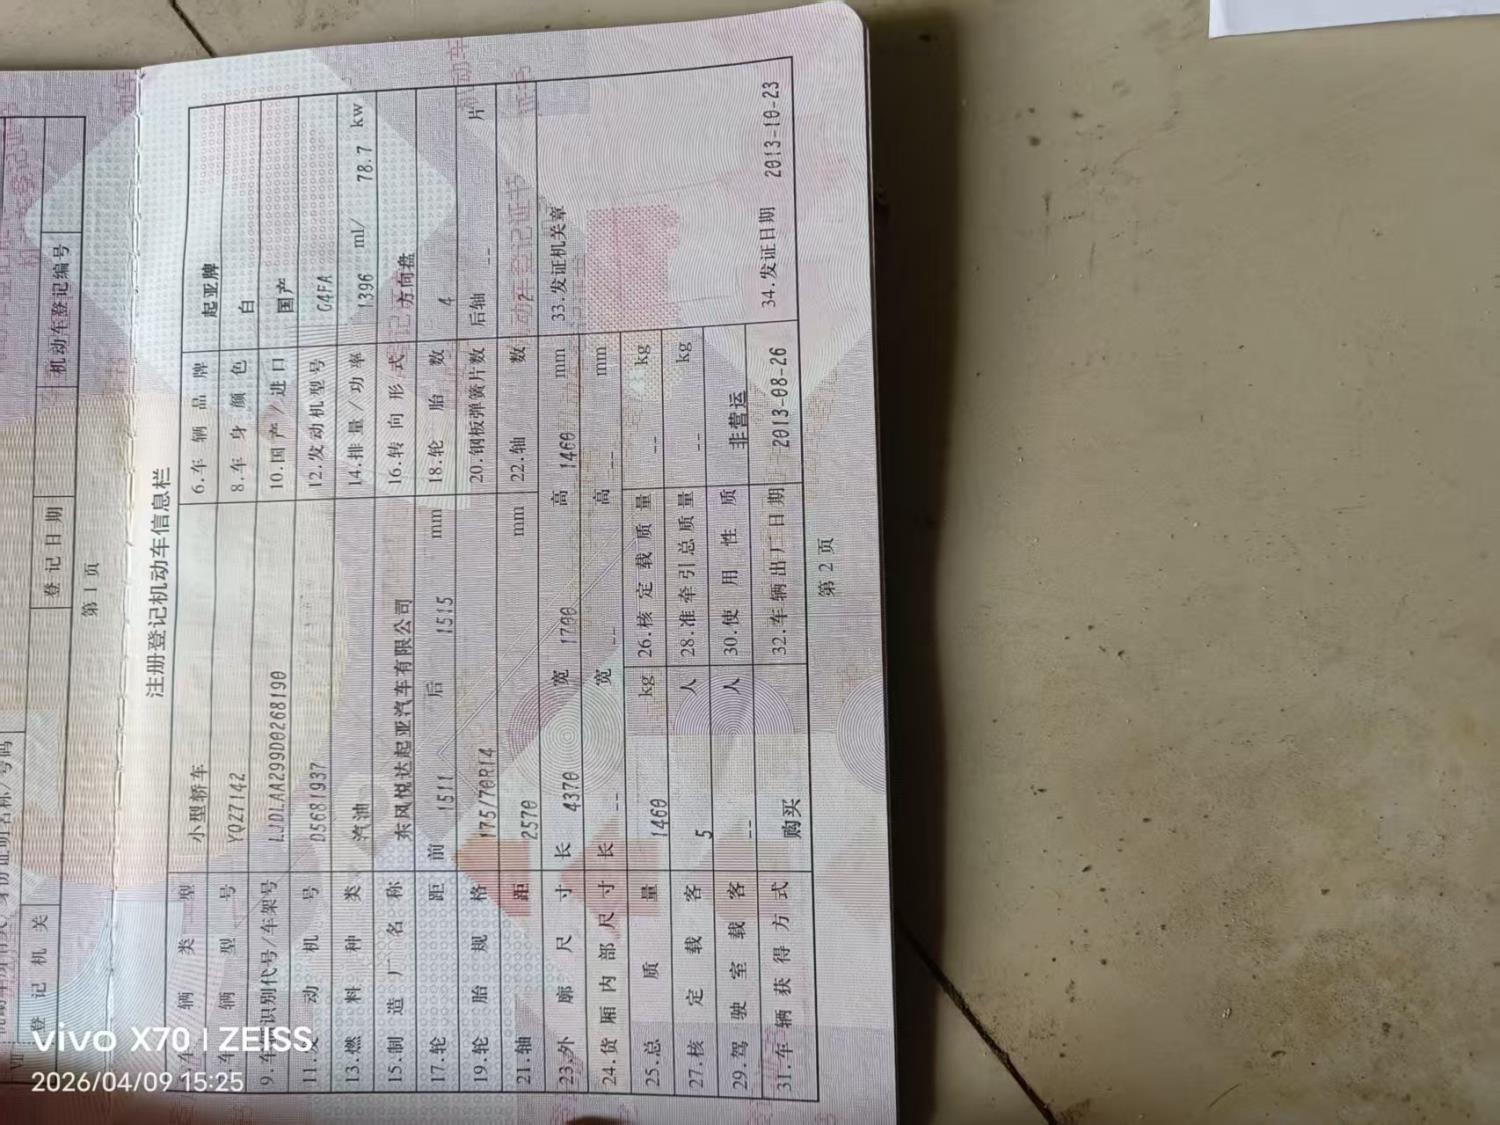 登记机关
登记日期
机动车登记编号
第 1 页
注册登记机动车信息栏
车辆类型 小型轿车 6.车辆品牌 起亚牌
车辆型号 YQZ7142 8.车身颜色 白
9.车辆识别代号/车架号 LJDLAA299D0268190 10.国产/进口 国产
11.发动机号 D5681937 12.发动机型号 G4FA
13.燃料种类 汽油 14.排量/功率 1396 ml/ 78.7 kw
15.制造厂名称 东风悦达起亚汽车有限公司 16.转向形式 方向盘
17.轮距 前 1511 后 1515 mm 18.轮胎数 4
19.轮胎规格 175/70R14 20.钢板弹簧片数 后轴 -- 片
21.轴距 2570 mm 22.轴数 2
23.外廓尺寸 长 4370 宽 1700 高 1460 mm 33.发证机关章
24.货厢内部尺寸 长 -- 宽 -- 高 -- mm
25.总质量 1460 kg 26.核定载质量 -- kg
27.核定载客 5 人 28.准牵引总质量 -- kg
29.驾驶室载客 -- 人 30.使用性质 非营运
31.车辆获得方式 购买 32.车辆出厂日期 2013-08-26 34.发证日期 2013-10-23
第 2 页
vivo X70 | ZEISS
2026/04/09 15:25